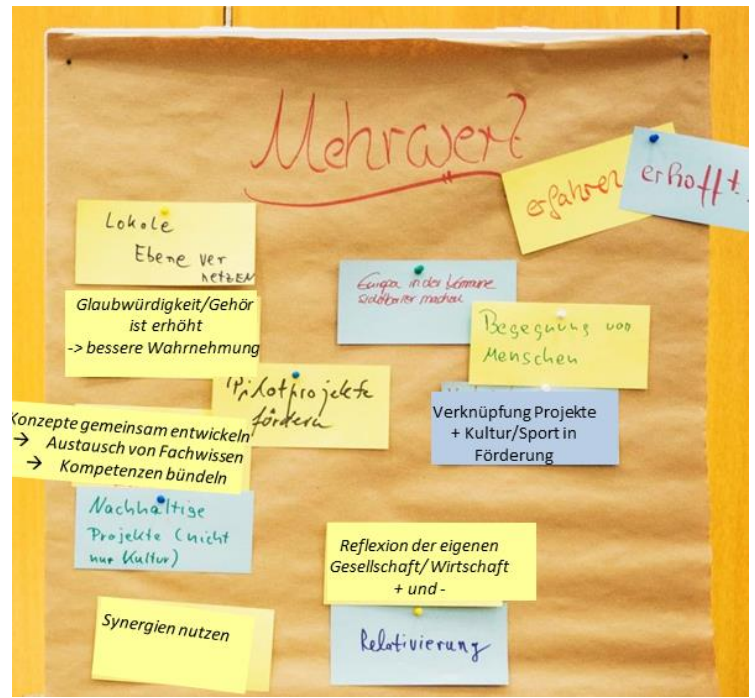 Mehrwert?
erfahren
erhofft
Lokale
Ebene ver
netzen
Glaubwürdigkeit/Gehör
ist erhöht
-> bessere Wahrnehmung
Europa in der Kommune
sichtbarer machen
Begegnung von
Menschen
Pilotprojekte
fördern
Verknüpfung Projekte
+ Kultur/Sport in
Förderung
Konzepte gemeinsam entwickeln
→ Austausch von Fachwissen
→ Kompetenzen bündeln
Nachhaltige
Projekte (nicht
nur Kultur)
Reflexion der eigenen
Gesellschaft/ Wirtschaft
+ und -
Relativierung
Synergien nutzen